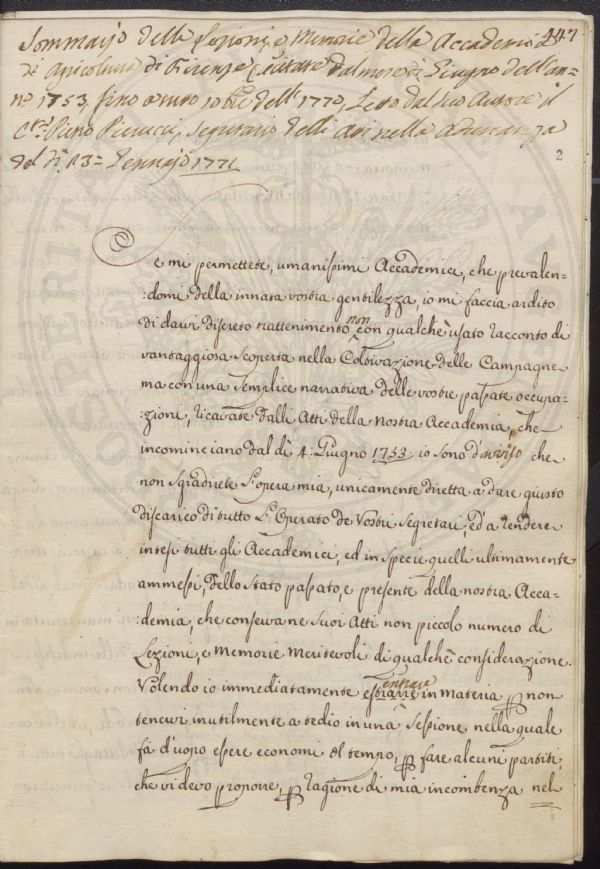 447
Sommario delle Lezioni, e Memorie della Accademia
di Agricoltura di Firenze recitate dal mese di Giugno dell'an-
no 1753, fino a tutto 10bre dell'1770, Letto dal suo Autore il
Piero Pierucci, Segretario delli Atti nella Adunanza
del dì 23 Gennajo 1771
2
Se mi permettete, umanissimi Accademici, che prevalen-
:domi della innata vostra gentilezza, io mi faccia ardito
di darvi discreto trattenimento non con qualche usato racconto di
vantaggiosa scoperta nella Coltivazione delle Campagne
ma con una semplice narrativa delle vostre passate occupa-
:zioni, ricavate dalli Atti della nostra Accademia, che
incominciano dal dì 4: Giugno 1753 io sono d'avviso che
non sgradirete l'opera mia, unicamente diretta a dare giusto
discarico di tutto l'Operato de Vostri Segretari, ed a rendere
intesi tutti gli Accademici, ed in specie quelli ultimamente
ammessi, dello stato passato, e presente della nostra Acca-
:demia, che conserva ne suoi Atti non piccolo numero di
Lezioni, e Memorie Meritevoli di qualche considerazione.
Volendo io immediatamente entrare in materia per non
tenervi inutilmente a tedio in una Sessione nella quale
fà d'uopo essere economi del tempo, per fare alcuni partiti,
che vi devo proporre, per ragione di mia incombenza nel